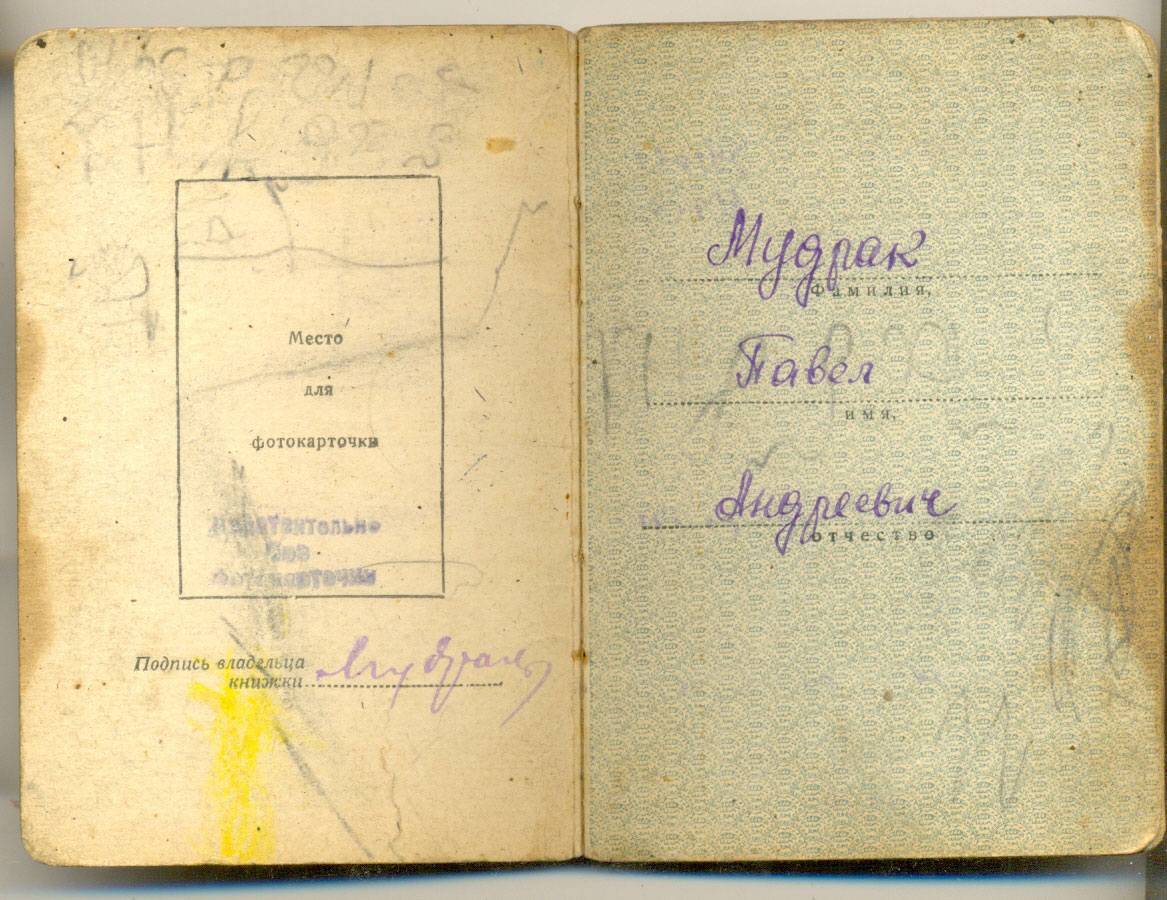 Место
для
фотокарточки
Действительно
без
фотокарточки
Подпись владельца
книжки Мудрак
Мудрак
Фамилия,
Павел
имя,
Андреевич
отчество